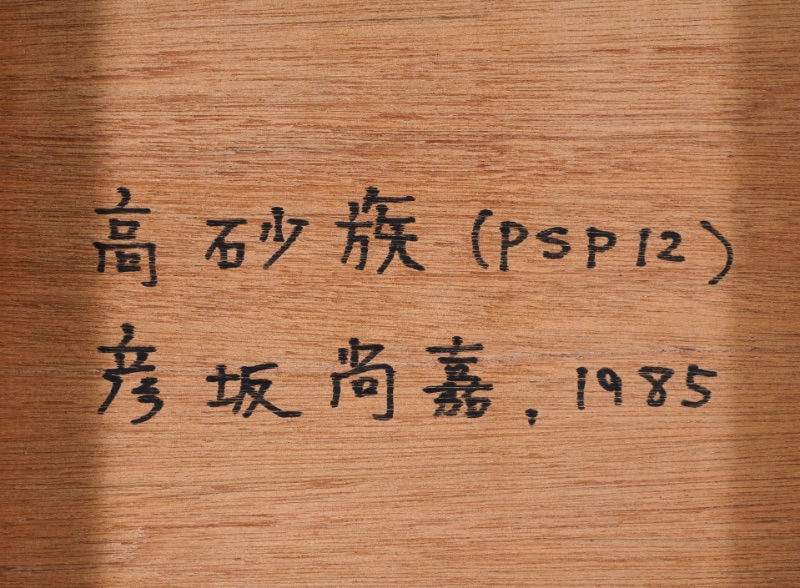 高砂族 (PSP12)
彦坂尚嘉. 1985